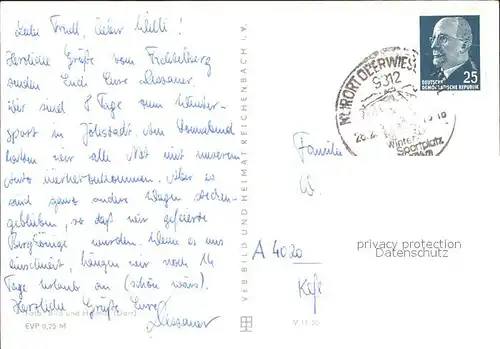 Liebe Trudl, lieber Willi!
Herzliche Grüße vom Fichtelberg
senden Euch Eure
Wir sind 8 Tage zum Winter-
sport in Jöhstadt. Am Sonnabend
hatten wir alle Not mit unserem
Auto hierherzukommen. Aber es
sind ganz andere Wagen stecken-
geblieben, so daß wir gefeierte
Bergkönige wurden. Wenn es uns
einschneit, hängen wir noch 14
Tage Urlaub an (schön wärs).
Herzliche Grüße Eure
Foto: Bild und Heimat (Darr)
EVP 0,25 M
VEB BILD UND HEIMAT REICHENBACH I. V.
KURORT OBERWIES
9312
Winter
Sportplatz
DEUTSCHE
DEMOKRATISCHE REPUBLIK
25
Familie
W.
A 4020
privacy protection
Datenschutz
V 11 50